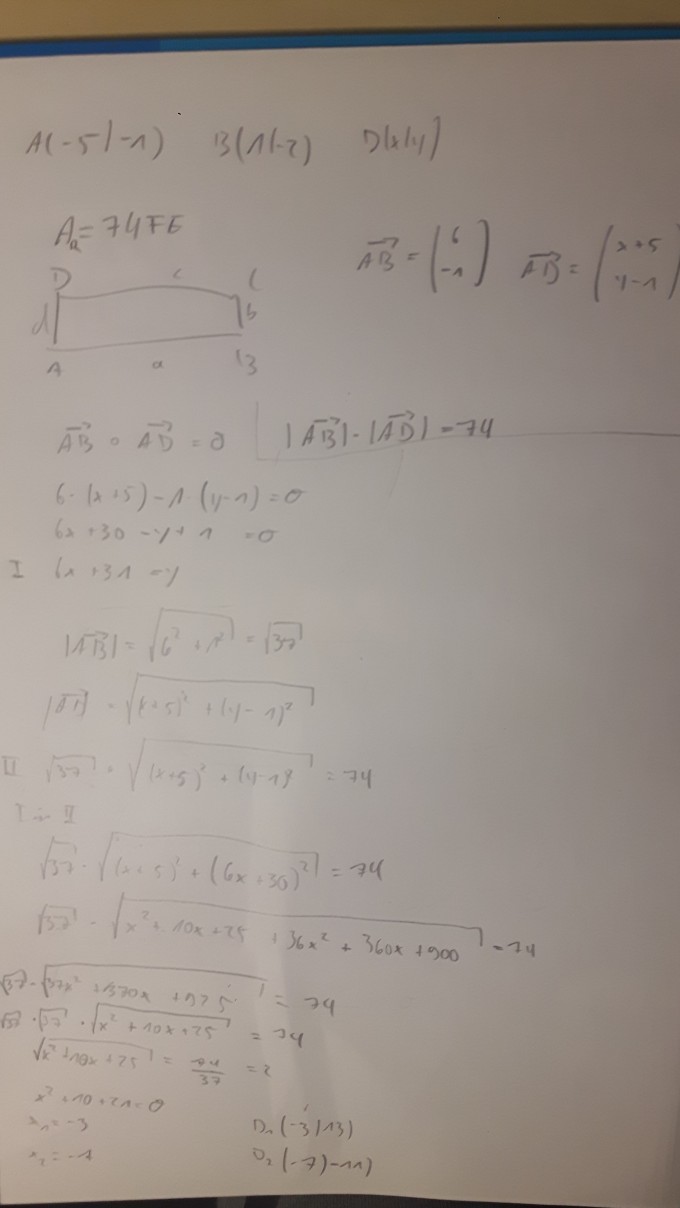 A(-5|-1) B(1|-2) D(x|y)
A = 74FE
AB = (6 -1) AD = (x+5 y-1)
D c C
d b
A a B
AB ∘ AD = 0 |AB|·|AD| = 74
6·(x+5)-1·(y-1)=0
6x+30-y+1=0
I 6x+31=y
|AB| = √(6²+1²) = √37
|AD| = √((x+5)²+(y-1)²)
II √37 · √((x+5)²+(y-1)²) = 74
I in II
√37 · √((x+5)²+(6x+30)²) = 74
√37 · √(x²+10x+25+36x²+360x+900) = 74
√37 · √(37x²+370x+925) = 74
√37 · √37 · √(x²+10x+25) = 74
√(x²+10x+25) = 74/37 = 2
x²+10+21=0
x₁=-3 D₁(-3|13)
D₂(-7|-11)